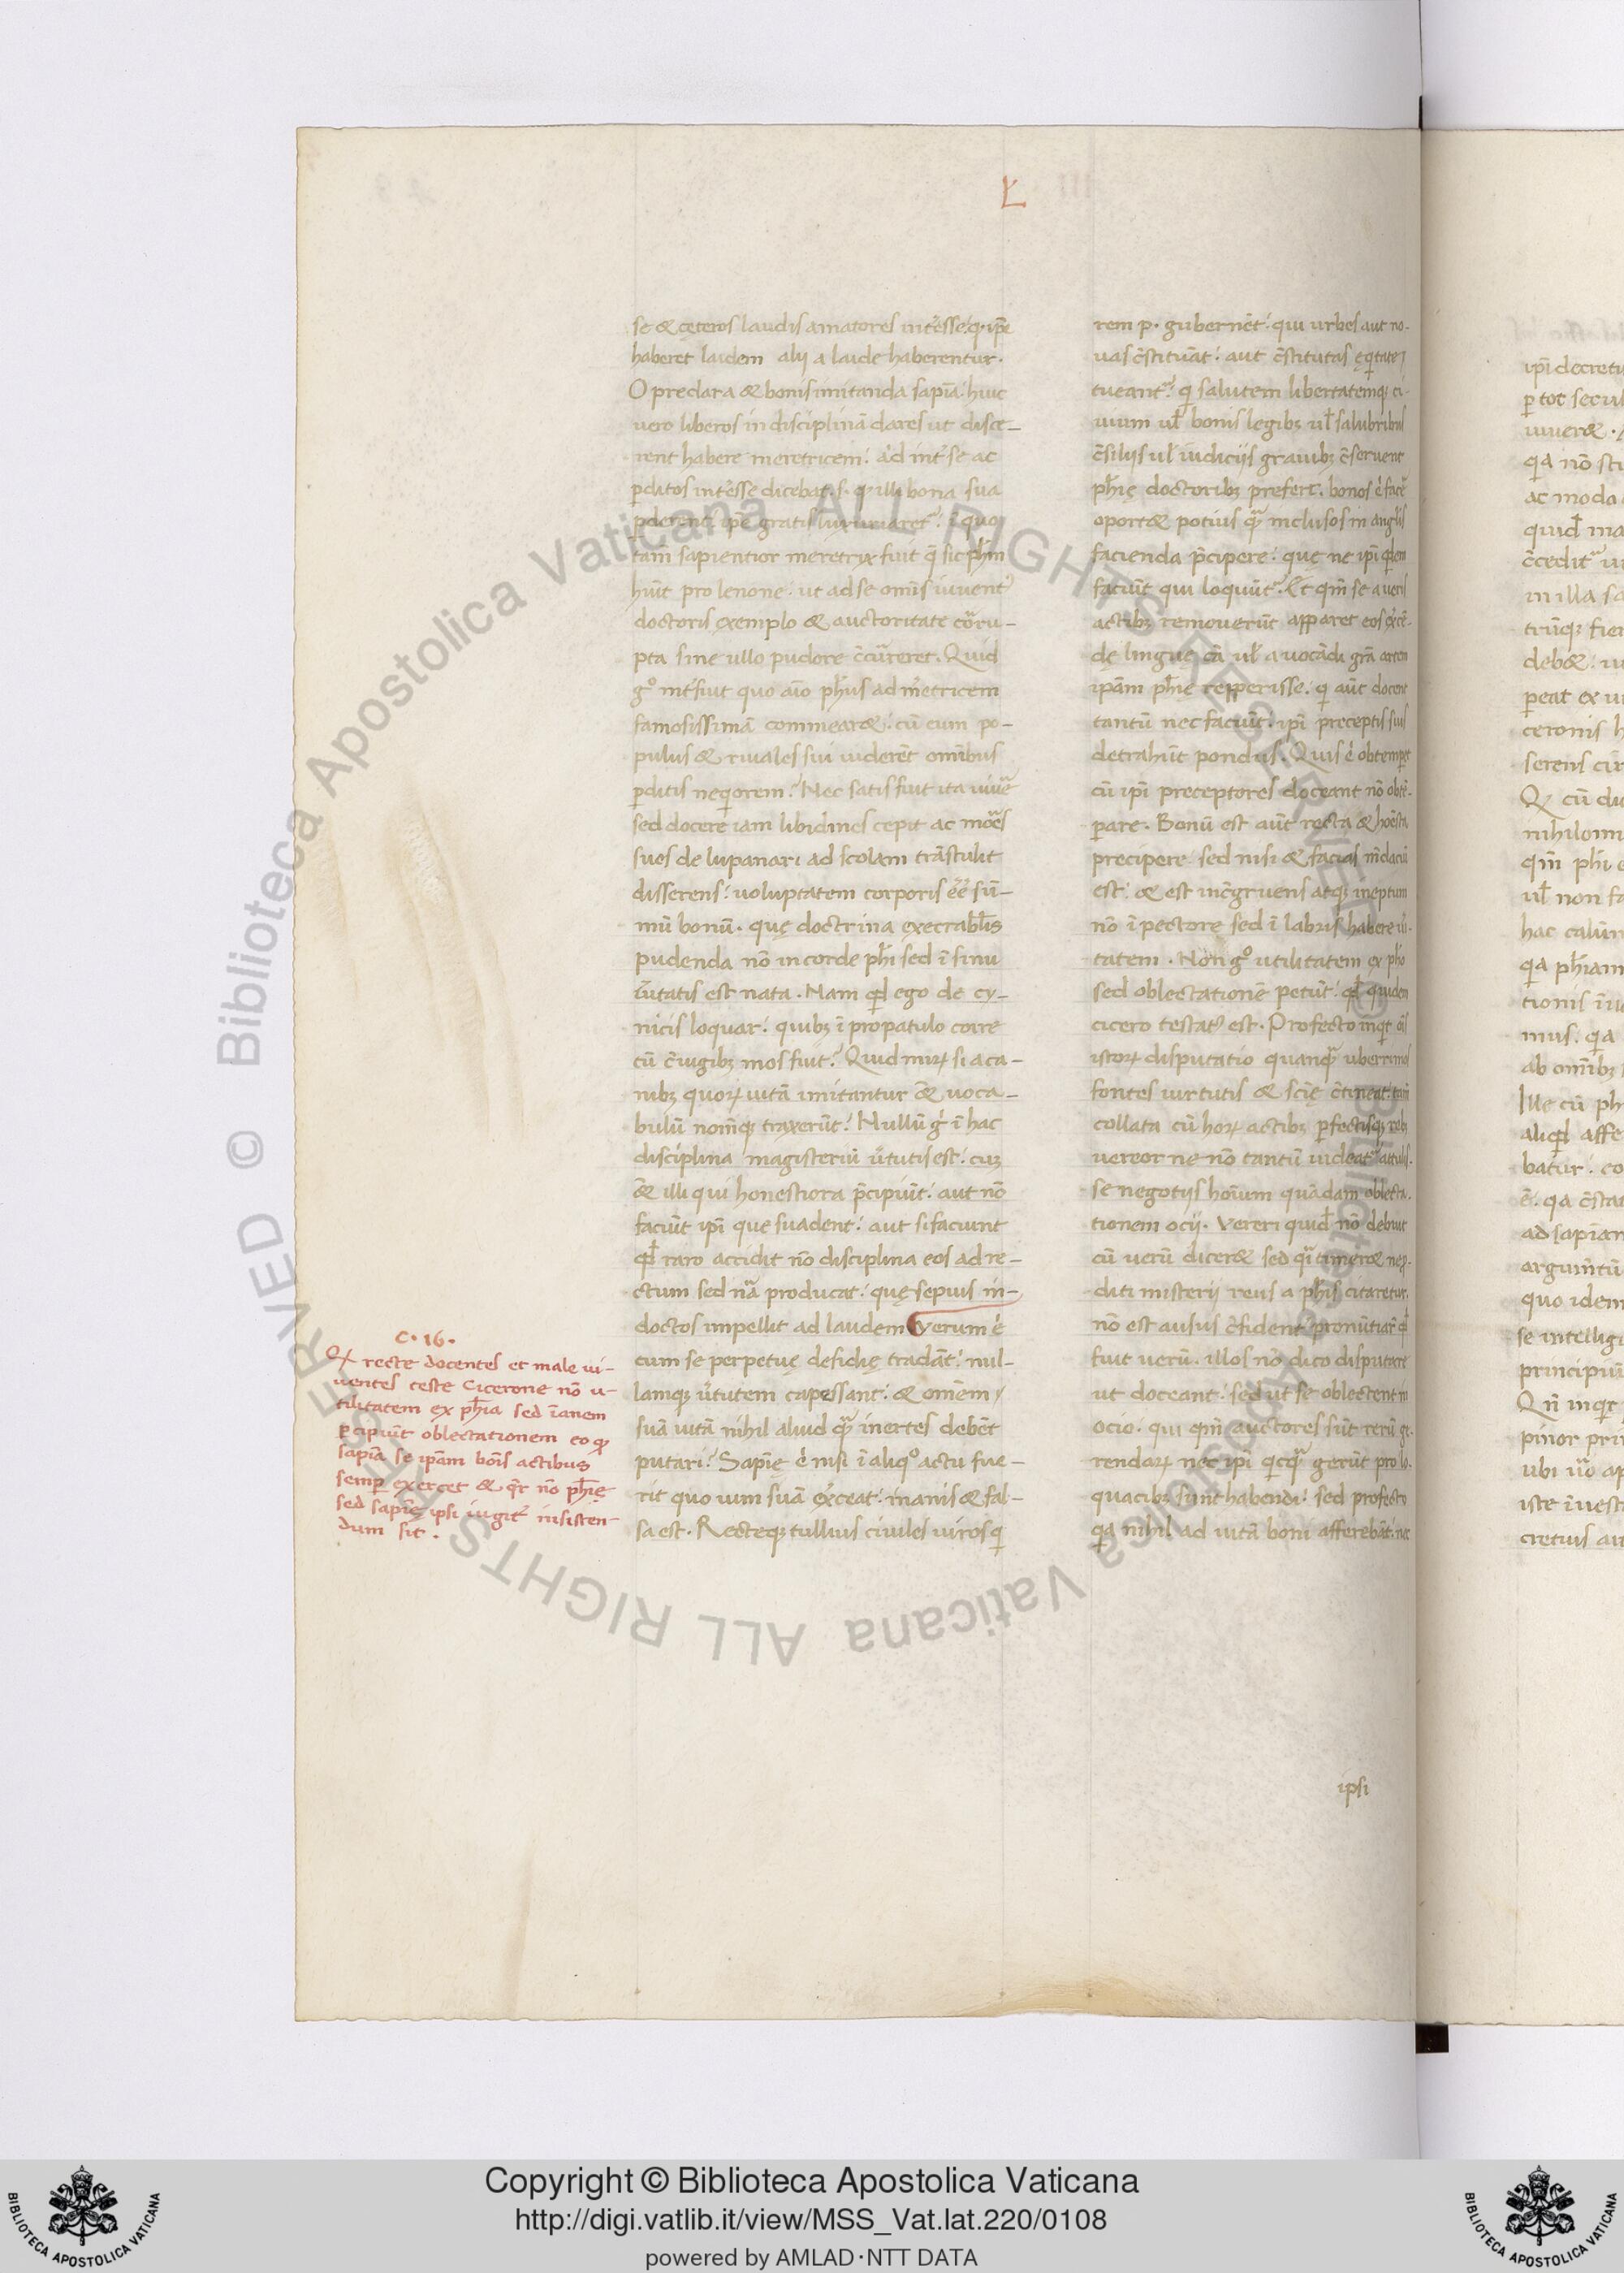 Ł
se & cęteros laudis amatores int̃esse. q. ip̃e
haberet laidem alii a laide haberentur.
O preclara & bonis imitanda sapīa. huic
uero liberos in disciplinā dares ut disce-
rent habere meretricem. ad int̃ se ac
p̲ditos int̃esse dicebat. s. q illi bona sua
p̲derent. ip̃e gratis luxuriaret᷑. ī quo
tam sapientior meretrix fuit q̃ sic ph̃m
hūit pro lenone. ut ad se om̄s iuuent᷑
doctoris exemplo & auctoritate cõru-
pta sine ullo pudore c̄cũreret. Quid
gͦ int̃fuit quo aīo ph̃us ad m̃etricem
famosissimā commear&. cū eum po-
pulus & riuales sui uiderēt omībus
p̲ditis neqiorem. Nec satis fuit ita uiuẽ
sed docere iam libidines cepit ac mões
suos de lupanari ad scolam trāstulit
disserens. uoluptatem corporis ẽẽ sū-
mū bonū. quę doctrina execrabl̃is
pudenda nō in corde ph̃i sed ī sinu
est nata. Nam qd̃ ego de cy-
nicis loquar. quibꝫ ī propatulo coire
cū c̄iugibꝫ mos fuit. Quid miꝝ si a ca-
nibꝫ quoꝝ uitā imitantur & uoca-
bulū nom̄qꝫ traxerūt. Nullū gͥ ī hac
disciplina magisteriū ũtutis est. cuꝫ
& illi qui honestiora p̄cipiūt. aut nō
faciūt ip̄i que suadent. aut si faciunt
qd̃ raro accidit nō disciplina eos ad re-
ctum sed nã producat. quę sepius in-
doctos impellit ad laudem Verum ẽ
cum se perpetuę desidię tradāt. nul-
lamqꝫ ũtutem capessant. & om̄em
suā uitā nihil aliud q̃ inertes debēt
putari. Sapīę ẽ nisi ī aliqͦ actu fue-
rit quo uim suā ex̃ceat. inanis & fal-
sa est. Recteqꝫ tullius ciuiles uiros q
rem p. gubernēt. qui urbes aut no-
uas c̄stituāt. aut c̄stitutas ęqitateꝫ
tueant᷑. q salutem libertatemqꝫ ci-
uium ul̃ bonis legibꝫ ul̃ salubribus
c̄siliis ul̃ iudiciis grauibꝫ c̄seruent
ph̃ię doctoribꝫ prefert. bonos ẽ facẽ
oport& potius q̃ inclusos in anglis
facienda p̄cipere. quę ne ip̄i qdem
faciūt qui loquūt᷑. Et qm̄ se a ueris
actibꝫ remouerūt apparet eos ex̃cē-
dę linguę cã ul̃ a uocādi grã artem
ip̄am ph̃ię repperisse. q aūt docent
tantū nec faciūt. ip̄i preceptis suis
detrahūt pondus. Quis ẽ obtemper&
cū ip̄i preceptores doceant nō obtē-
p̲are. Bonū est aūt recta & hoēsta
precipere. sed nisi & facias m̄daciū
est. & est inc̄gruens atqꝫ ineptum
nō ī pectore sed ī labris habere
tatem. Non gͦ utilitatem ex ph̃ia
sed oblectationē petūt. qd̃ quidem
cicero testat᷑ est. Profecto inqt ois
istoꝝ disputatio quanq̃ uberrimos
fontes uirtutis & scīę c̄tineat. tam
collata cū hoꝝ actibꝫ p̲fectisqꝫ rebꝫ
uereor ne nō tantū uideat᷑ attulis-
se negotiis hoīum quādam oblecta-
tionem ocii. Vereri quid̃ nō debuit
cū uerū dicer& sed qi timer& ne p-
diti misterii reus a ph̃is citaretur.
nō est ausus c̄fident᷑ pronūtiar̃ qd
fuit uerū. illos nō dico disputare
ut doceant. sed ut se oblectent in
ocio. qui qm̄ auctores sūt rerū ge-
rendaꝝ nec ip̄i qicq̃ gerūt pro lo-
quacibꝫ sunt habendi. sed profecto
qa nihil ad uitā boni afferebāt. nec
ipsi
C. 16.
Qꝫ recte docentes et male ui-
uentes teste Cicerone nō u-
tilitatem ex ph̃ia sed īanem
p̲cipiūt oblectationem eo qꝫ
sapīa se ipām bōis actibus
semp̲ exercet & qr̃ nō ph̃ię
sed sapīę ipsi iugit᷑ insisten-
dum sit.
ip̄i decretu
p̲ tot secul
uiuer&.
qa nō sci
ac modo
quid̃ ma
c̄cedit᷑ ui
in illa sa
trūqꝫ fie
deb&.
p̲eat ex ui
ceronis h
serens cir
Qꝫ cū di
nihilomi
qm̄ ph̃i
ul̃ non fa
hac calūn
qa ph̃iam
tionis īu
mus. qa
ab omībꝫ
Ille cū ph
aliqd̃ affe
batur. co
ē. qa c̄stat
ad sapīam
argum̄tū
quo idem
se intellig
principiū
Qn̄ inqt
pinor pri
ubi ũo ap
iste īuest
cretius ait
© Biblioteca Apostolica Vaticana ALL RIGHTS RESERVED
© Biblioteca Apostolica Vaticana ALL RIGHTS RESERVED
BIBLIOTECA APOSTOLICA VATICANA
Copyright © Biblioteca Apostolica Vaticana
http://digi.vatlib.it/view/MSS_Vat.lat.220/0108
powered by AMLAD·NTT DATA
BIBLIOTECA APOSTOLICA VATICANA